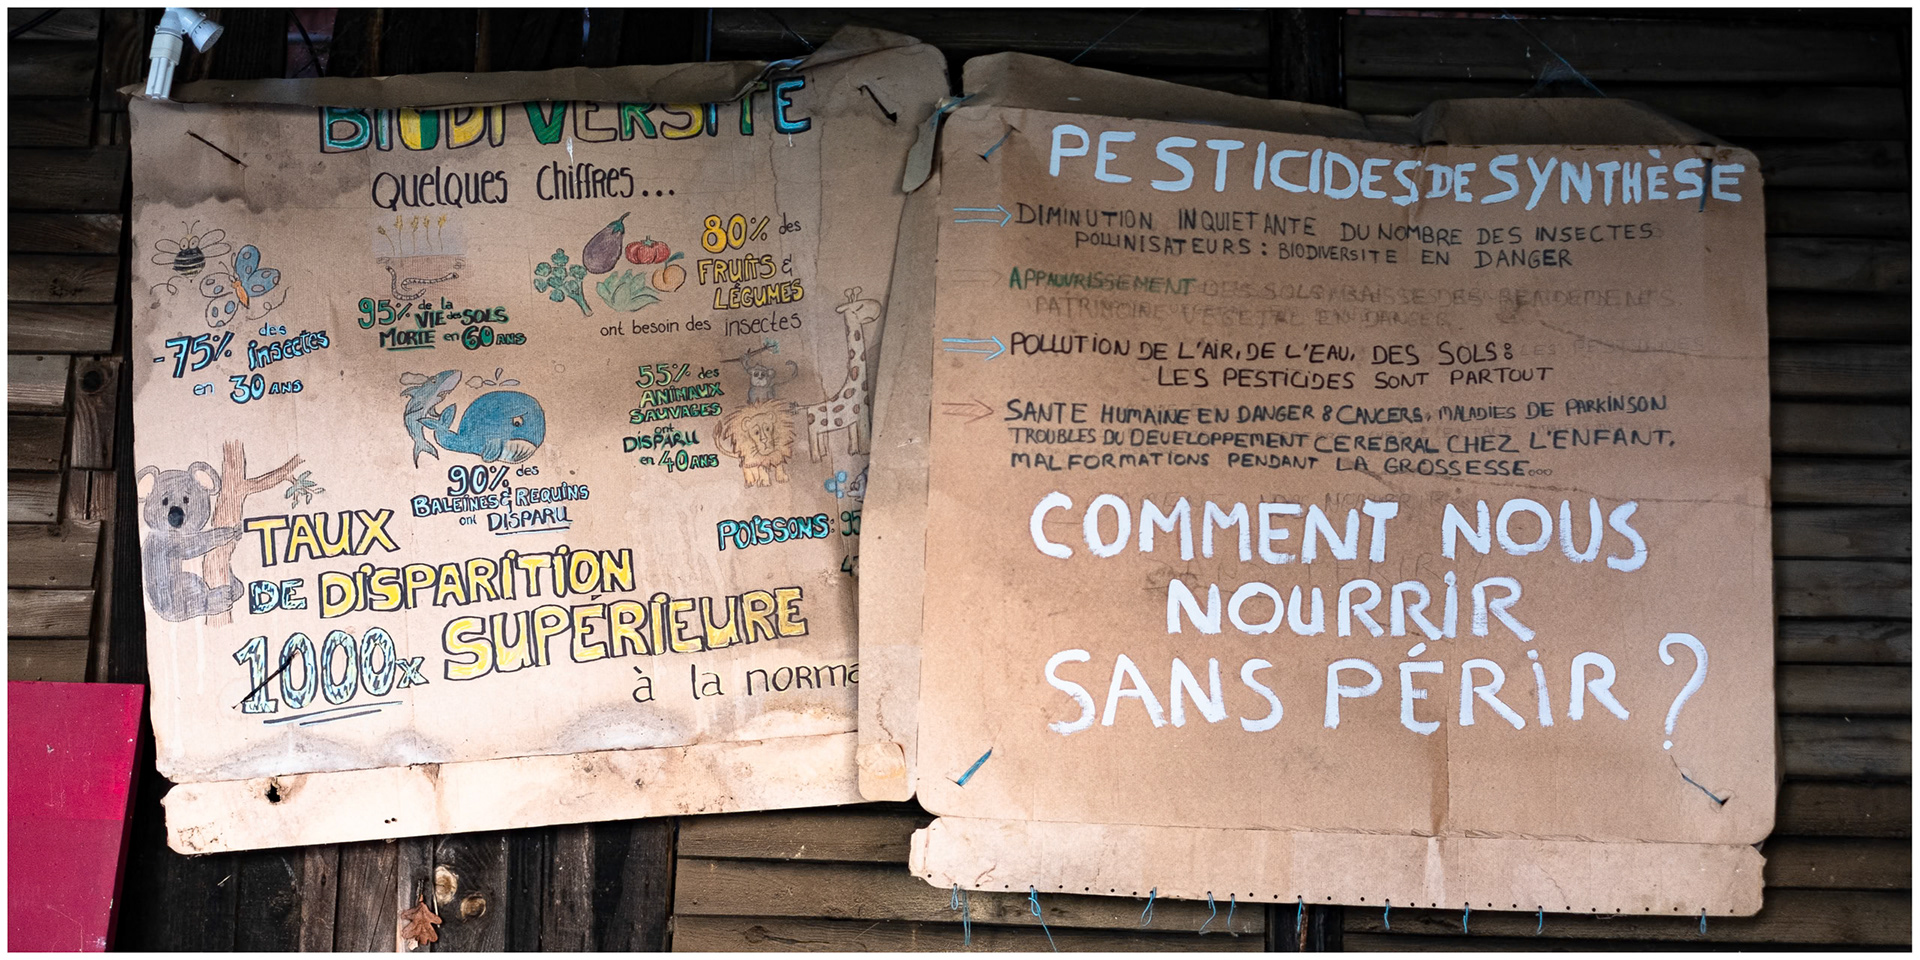 BIODIVERSITÉ
Quelques Chiffres...
-75% des
insectes
en 30 ANS
95% de la
VIE des SOLS
MORTE en 60 ANS
80% des
FRUITS &
LÉGUMES
ont besoin des insectes
90% des
BALEINES & REQUINS
ont DISPARU
55% des
ANIMAUX
SAUVAGES
ont
DISPARU
en 40 ANS
POISSONS:
TAUX
DE DISPARITION
1000x SUPÉRIEURE
à la norma
PESTICIDES DE SYNTHÈSE
DIMINUTION INQUIETANTE DU NOMBRE DES INSECTES
POLLINISATEURS : BIODIVERSITE EN DANGER
APPAUVRISSEMENT DES SOLS, BAISSE DES RENDEMENTS.
PATRIMOINE VEGETAL EN DANGER.
POLLUTION DE L'AIR, DE L'EAU, DES SOLS :
LES PESTICIDES SONT PARTOUT
SANTE HUMAINE EN DANGER : CANCERS, MALADIES DE PARKINSON
TROUBLES DU DEVELOPPEMENT CEREBRAL CHEZ L'ENFANT,
MALFORMATIONS PENDANT LA GROSSESSE...
COMMENT NOUS
NOURRIR
SANS PÉRIR ?